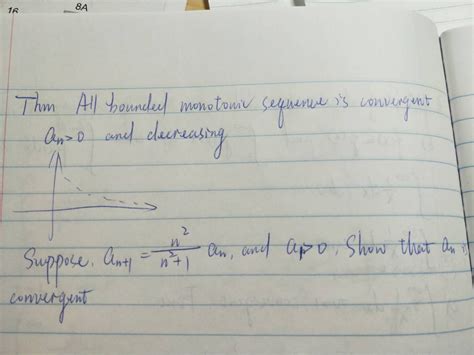 16 8A
Thm All bounded monotonic sequence is convergent
an>0 and decreasing
Suppose. an+1 = n²/n²+1 an, and a1>0. Show that an is
convergent